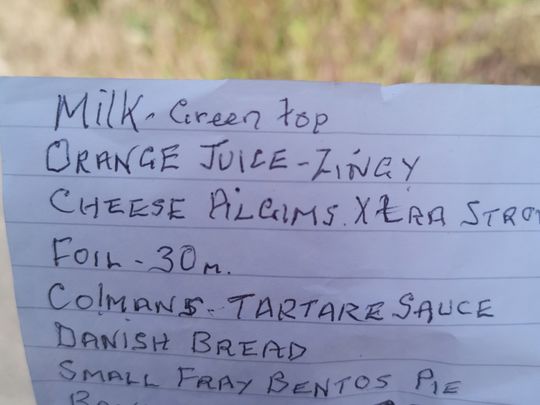 Milk - Green top
ORANGE JUICE - ZINGY
CHEESE PILGIMS. XTRA STRO
FOIL - 30m.
COlMANS - TARTARE SAUCE
DANISH BREAD
SMALL FRAY BENTOS PIE